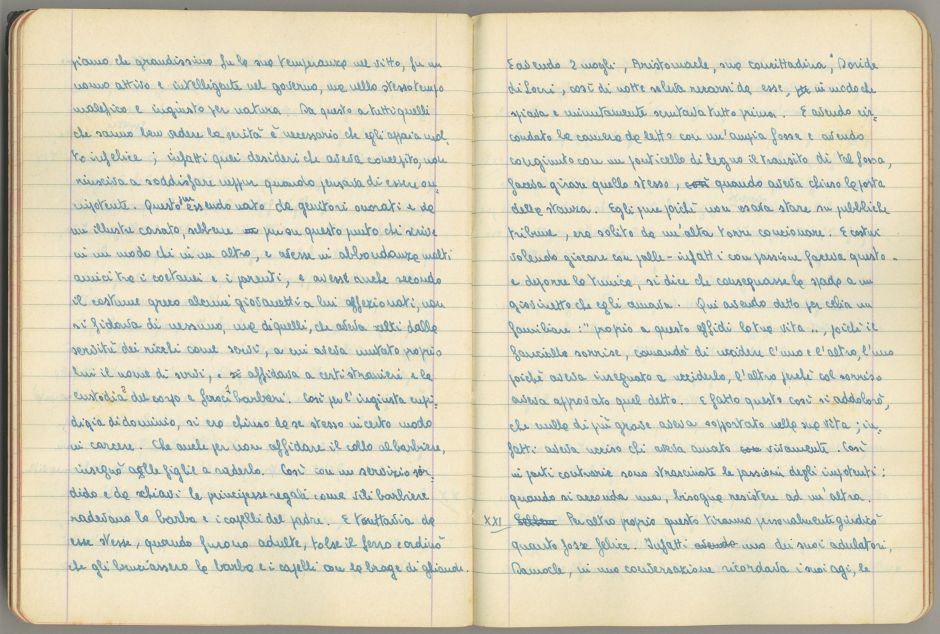 piamo che grandissima fu la sua temperanza nel vitto, fu un
uomo attivo e intelligente nel governo, ma nello stesso tempo
malefico e ingiusto per natura. Da questo a tutti quelli
che sanno ben vedere la verità è necessario che egli appaia mol-
to infelice; infatti quei desideri che aveva concepito, non
riusciva a soddisfare neppur quando pensava di essere on-
nipotente. Questo pur essendo nato da genitori onorati e da
un illustre casato, sebbene poi su questo punto chi scrive
in un modo chi in un altro, e avesse in abbondanza molti
amici tra i coetanei e i parenti, e avesse anche secondo
il costume greco alcuni giovanetti a lui affezionati, non
si fidava di nessuno, ma di quelli, che aveva scelti dalla
servitù dei ricchi come servi, a cui aveva mutato proprio
lui il nome di servi, e si affidava a certi stranieri e la
custodia 2 del corpo e feroci 1 barbari. Così per l'ingiusta cupi-
digia di dominio, si era chiuso da se stesso in certo modo
in carcere. Che anche per non affidare il collo al barbiere,
insegnò alle figlie a raderlo. Così con un servizio sor-
dido e da schiavi le principesse regali come vili barbiere
radevano la barba e i capelli del padre. E tuttavia da
esse stesse, quando furono adulte, tolse il ferro e ordinò
che gli bruciassero la barba e i capelli con la brage di ghiande.
E avendo 2 mogli, Aristomache, sua concittadina, Doride
di Locri, così di notte soleva recarsi da esse, in modo che
spiava e minutamente scrutava tutto prima. E avendo cir-
condato la camera da letto con un'ampia fossa e avendo
congiunto con un ponticello di legno il transito di tal fossa,
faceva girare quello stesso, così quando aveva chiuso la porta
della stanza. Egli pure poiché non osava stare su pubbliche
tribune, era solito da un'alta torre concionare. E costui
volendo giocare con palle - infatti con passione faceva questo -
e deporre la tunica, si dice che consegnasse la spada a un
giovinetto che egli amava. Qui avendo detto per celia un
familiare: "proprio a questo affidi la tua vita", poiché il
fanciullo sorrise, comandò di uccidere l'uno e l'altro, l'uno
poiché aveva insegnato a ucciderlo, l'altro perché col sorriso
aveva approvato quel detto. E fatto questo così si addolorò,
che nulla di più grave aveva sopportato nella sua vita; in-
fatti aveva ucciso chi aveva amato vivamente. Così
in parti contrarie sono trascinate le passioni degli impotenti:
quando si asconda una, bisogna resistere ad un'altra.
XXI Per altro proprio questo tiranno personalmente giudicò
quanto fosse felice. Infatti avendo uno dei suoi adulatori,
Damocle, in una conversazione ricordava i suoi agi, le